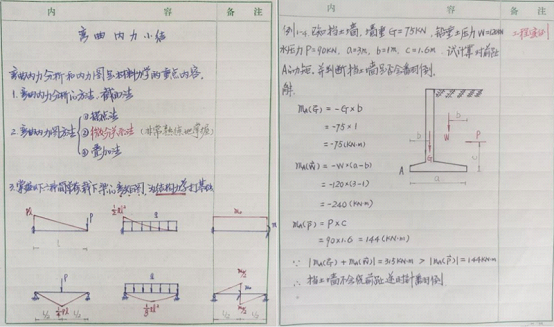 内 容 备 注
弯曲内力小结
弯曲内力分析和内力图是材料力学的重点内容。
1. 弯曲内力分析的方法,截面法
2. 弯曲内力图方法
①描点法
②微分关系法(非常熟练地掌握)
③叠加法
Pl
P
l
q
m₀
m
P
q
l/2
l/2
l/2
l/2
内 容 备 注
例1-4. 挡土墙, 墙重G=75KN, 铅垂土压力W=120KN
水平压力P=90KN. a=3m, b=1m, c=1.6m. 试计算对前趾
A的力矩, 并判断挡土墙是否会倾倒.
工程实例
解.
mA(G) = -G×b
= -75×1
= -75(KN·m)
mA(W) = -W×(a-b)
= -120×(3-1)
= -240(KN·m)
mA(P) = P×c
= 90×1.6 = 144(KN·m)
∵ |mA(G)+mA(W)| = 315KN·m > |mA(P)| = 144KN·m
∴ 挡土墙不会绕前趾逆时针倾倒
b
W
P
b
G
c
A
a